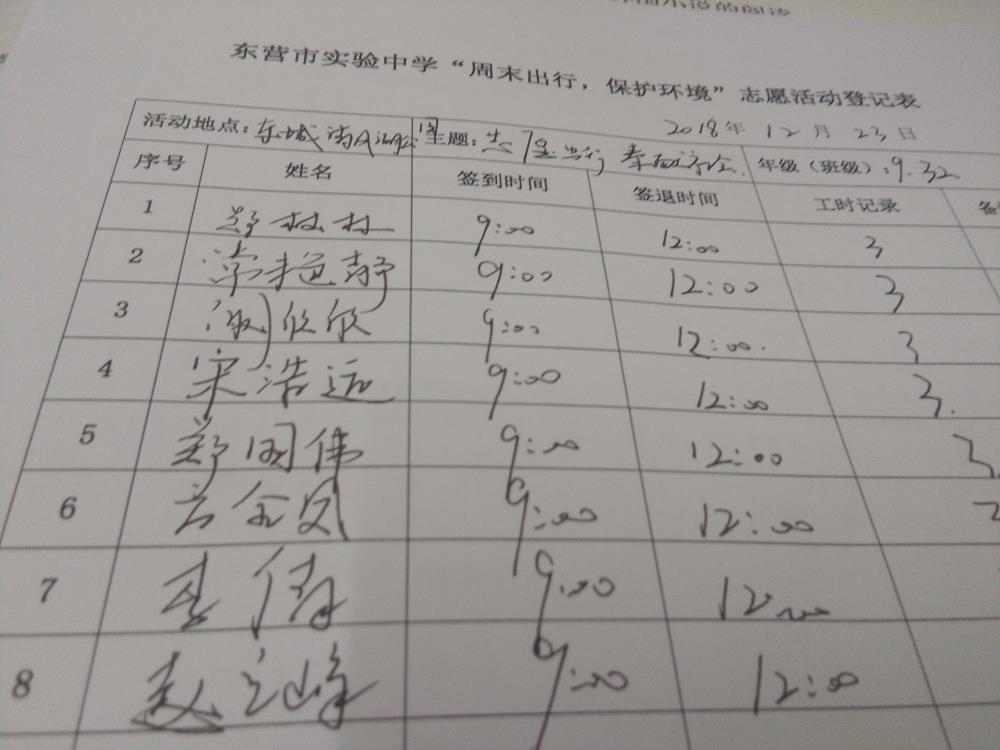 小说的阅读
东营市实验中学“周末出行，保护环境”志愿活动登记表
2018年 12月 23日
活动地点：东城 主题： 年级（班级）：9.32
序号 姓名 签到时间 签退时间 工时记录 备
1 郑林林 9:00 12:00 3
2 常超静 9:00 12:00 3
3 刘欣欣 9:00 12:00 3
4 宋浩远 9:00 12:00 3
5 郑国伟 9:00 12:00 3
6 金凤 9:00 12:00
7 李倩 9:00 12:00
8 赵立峰 9:00 12:00